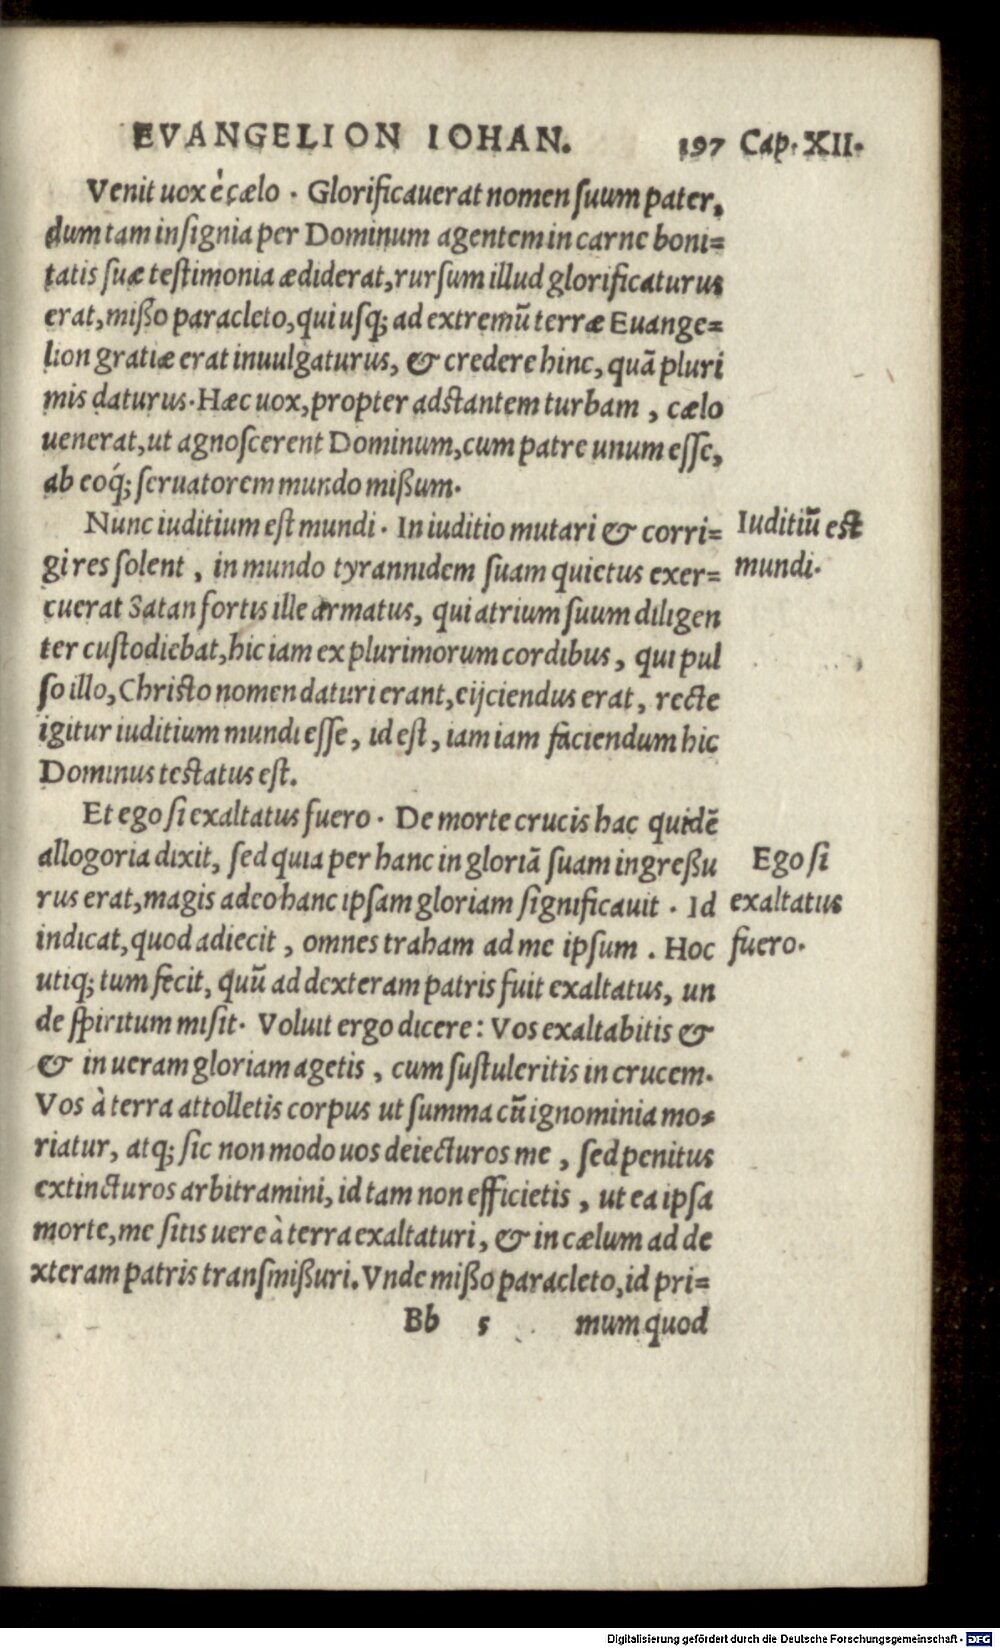 EVANGELION IOHAN. 197 Cap. XII.
Venit uox è çælo. Glorificauerat nomen suum pater,
dum tam insignia per Dominum agentem in carne boni=
tatis suæ testimonia ædiderat, rursum illud glorificaturus
erat, mißo paracleto, qui usq; ad extremũ terræ Euange=
lion gratiæ erat inuulgaturus, & credere hinc, quã pluri
mis daturus. Hæc uox, propter adstantem turbam, cælo
uenerat, ut agnoscerent Dominum, cum patre unum esse,
ab eoq́; seruatorem mundo mißum.
Nunc iuditium est mundi. In iuditio mutari & corri=
gi res solent, in mundo tyrannidem suam quietus exer=
cuerat Satan fortis ille armatus, qui atrium suum diligen
ter custodiebat, hic iam ex plurimorum cordibus, qui pul
so illo, Christo nomen daturi erant, eijciendus erat, recte
igitur iuditium mundi esse, id est, iam iam faciendum hic
Dominus testatus est.
Iuditiũ est
mundi.
Et ego si exaltatus fuero. De morte crucis hac quidẽ
allogoria dixit, sed quia per hanc in gloriã suam ingreßu
rus erat, magis adeo hanc ipsam gloriam significauit. Id
indicat, quod adiecit, omnes traham ad me ipsum. Hoc
utiq; tum fecit, quũ ad dexteram patris fuit exaltatus, un
de spiritum misit. Voluit ergo dicere: Vos exaltabitis &
& in ueram gloriam agetis, cum sustuleritis in crucem.
Vos à terra attolletis corpus ut summa cũ ignominia mo=
riatur, atq; sic non modo uos deiecturos me, sed penitus
extincturos arbitramini, id tam non efficietis, ut ea ipsa
morte, me sitis uere à terra exaltaturi, & in cælum ad de
xteram patris transmißuri. Vnde mißo paracleto, id pri=
Ego si
exaltatus
fuero.
Bb 5 mum quod
Digitalisierung gefördert durch die Deutsche Forschungsgemeinschaft - DFG